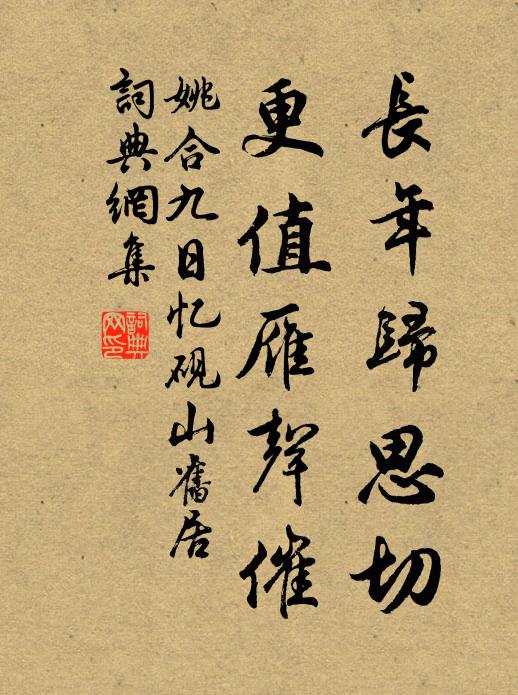 長年歸思切
更值雁聲催
姚合九日忆硯山舊居
詞典網集
詞典
网印